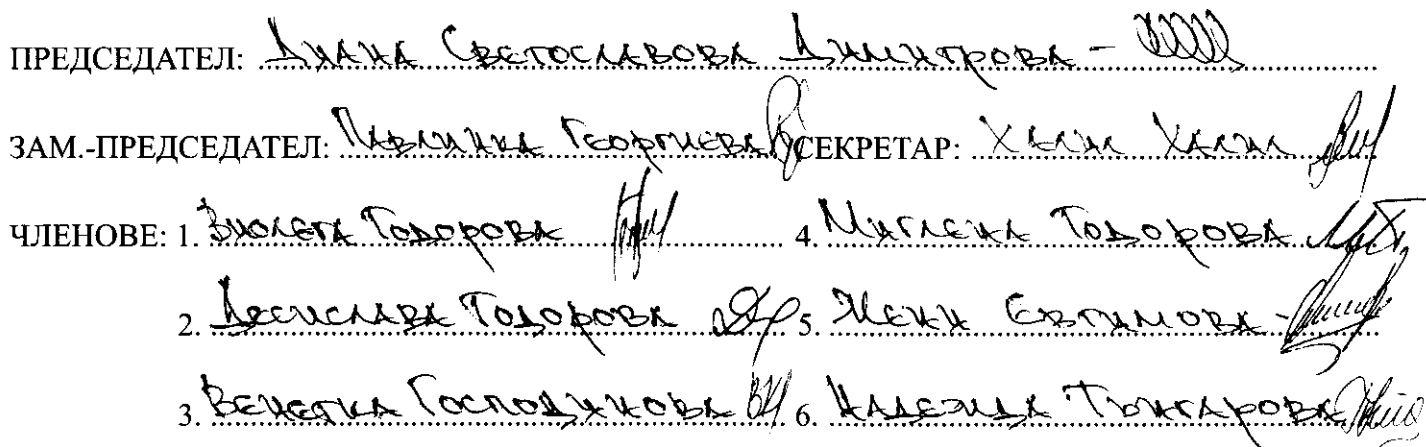 ПРЕДСЕДАТЕЛ: Диана Светославова Димитрова -
ЗАМ.-ПРЕДСЕДАТЕЛ: Павлинка Георгиева СЕКРЕТАР: Халил Халил
ЧЛЕНОВЕ: 1. Виолета Тодорова 4. Миглена Тодорова
2. Десислава Тодорова 5. Жени Евтимова -
3. Венетка Господинова 6. Надежда